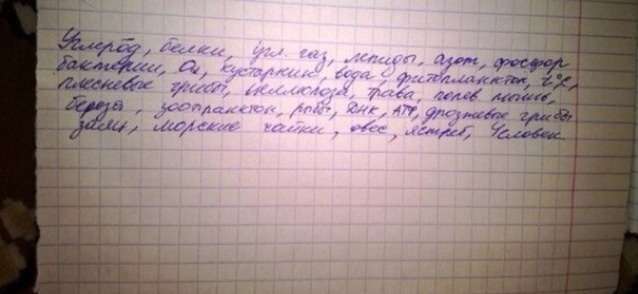 Углерод, белки, угл. газ, липиды, азот, фосфор
бактерии, O₂, кустарники, вода, фитопланктон, t°C,
плесневые грибы, целлюлоза, трава, полев. мышь,
березы, зоопланктон, рыбы, ДНК, АТФ, дрожжевые грибы
заяц, морские чайки, овес, ястреб, Человек